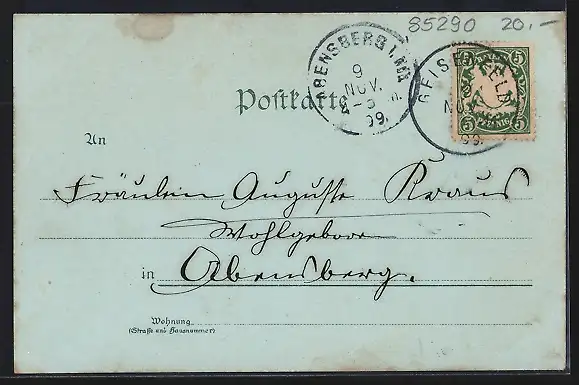 85290 20.-
ABENSBERG
9
NOV.
99.
GEISENFELD
NOV.
99.
5 5
PFENNIG
5 5
Postkarte
An
Fräulein Auguste Kraus
Wohlgeboren
in Abensberg.
Wohnung
(Straße und Hausnummer)